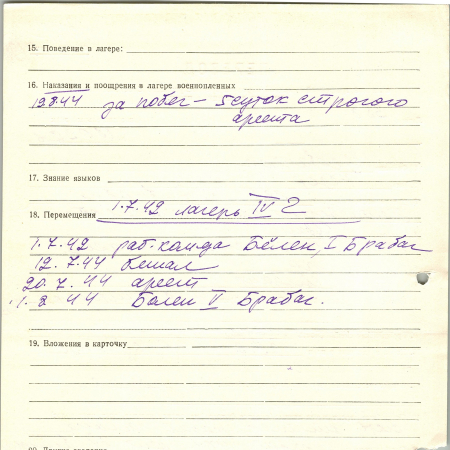 15. Поведение в лагере:
16. Наказания и поощрения в лагере военнопленных
12.8.44 за побег – 5 суток строгого
ареста
17. Знание языков
18. Перемещения 1.7.42 лагерь IV Г
1.7.42 раб. ком-да Бёлен, I Брабаг
12.7.44 бежал
20.7.44 арест
1.8 44 Бёлен V Брабаг.
19. Вложения в карточку